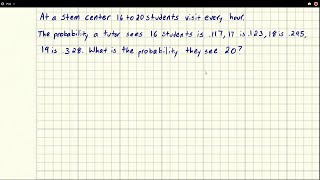 At a stem center 16 to 20 students visit every hour.
The probability a tutor sees 16 students is .117, 17 is .123, 18 is .295,
19 is .328. What is the probability they see 20?